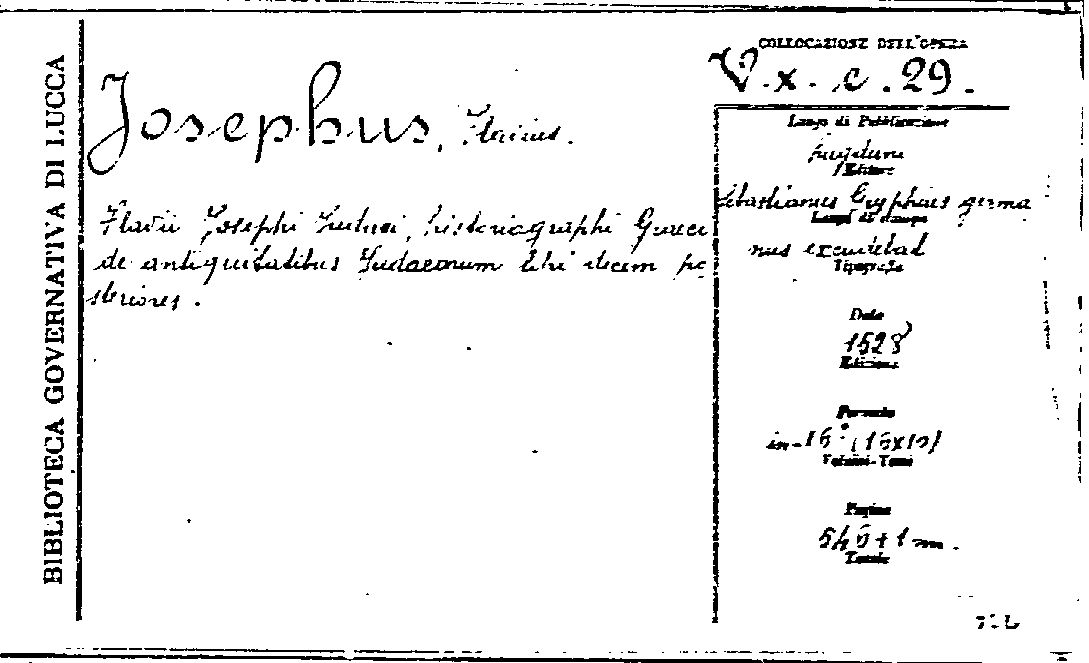 BIBLIOTECA GOVERNATIVA DI LUCCA
Josephus, Flavius.
Flavii Josephi Iudaei, historiographi Graeci
de antiquitatibus Judaeorum libri decem po
steriores.
COLLOCAZIONE DELL'OPERA
V. x. c. 29.
Luogo di Pubblicazione
Lugduni
Editore
Sebastianus Gryphius germa
Luogo di stampa
nus excudebat
Tipografia
Data
1528
Edizione
Formato
in-16° (16x10)
Volumi-Tomi
Pagine
546+1
Tavole